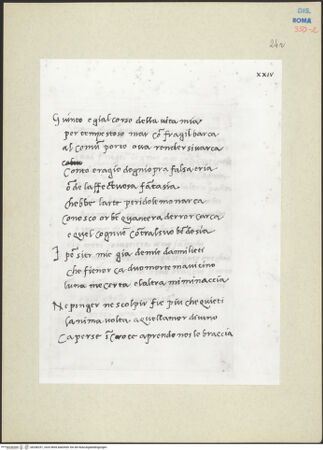 DIS.
ROMA
350-2
24r
XXIV
Giunto e gial corso della uita mia
per tempestoso mar co fragil barca
al comu porto oua render si uarca
conto e ragio dogni opra falsa e ria
o de laffectuosa fantasia
che larte mi monarca
conosco or be quantera derror carca
e quel cognun contra suo be desia
I pe sier mie gia de mie danni lieti
che fien or sa duo morte mauicino
luna me certa e laltera mi minaccia
Ne pinger ne scolpir fie piu che quieti
lanima uolta a quellamor diuino
caperse i croce a prender noi le braccia